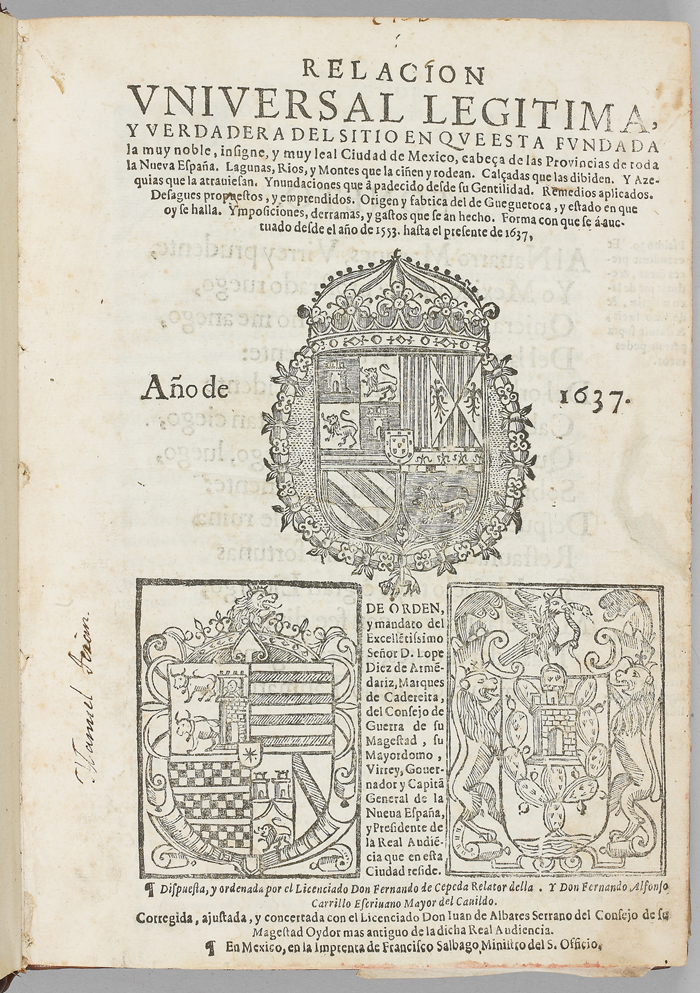 RELACION
VNIVERSAL LEGITIMA,
Y VERDADERA DEL SITIO EN QVE ESTA FVNDADA
la muy noble, insigne, y muy leal Ciudad de Mexico, cabeça de las Provincias de toda
la Nueva España. Lagunas, Rios, y Montes que la ciñen y rodean. Calçadas que las dibiden. Y Aze-
quias que la atrauiesan. Ynundaciones que á padecido desde su Gentilidad. Remedios aplicados.
Desagues propuestos, y emprendidos. Origen y fabrica del de Gueguetoca, y estado en que
oy se halla. Ymposiciones, derramas, y gastos que se an hecho. Forma con que se á auc-
tuado desde el año de 1553. hasta el presente de 1637,
Año de 1637.
DE ORDEN,
y mandato del
Excellẽtissimo
Señor D. Lope
Diez de Armẽ-
dariz, Marques
de Cadereita,
del Consejo de
Guerra de su
Magestad, su
Mayordomo,
Virrey, Gouer-
nador y Capitã
General de la
Nueua España,
y Presidente de
la Real Audiẽ-
cia que en esta
Ciudad reside.
Manuel
¶ Dispuesta, y ordenada por el Licenciado Don Fernando de Cepeda Relator della. Y Don Fernando Alfonso
Carrillo Escriuano Mayor del Cauildo.
Corregida, ajustada, y concertada con el Licenciado Don Iuan de Albares Serrano del Consejo de su
Magestad Oydor mas antiguo de la dicha Real Audiencia.
¶ En Mexico, en la Imprenta de Francisco Salbago, Ministro del S. Officio.